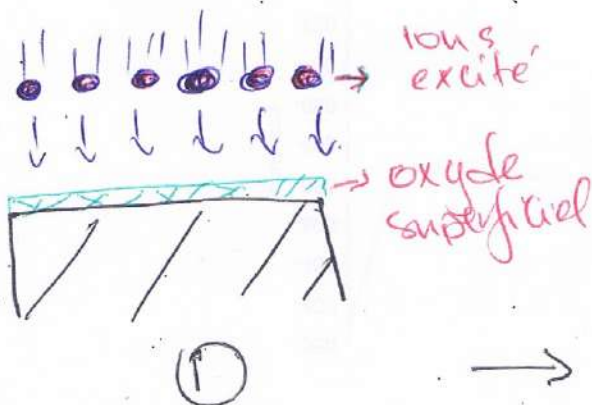 ions
excité
oxyde
superficiel
1